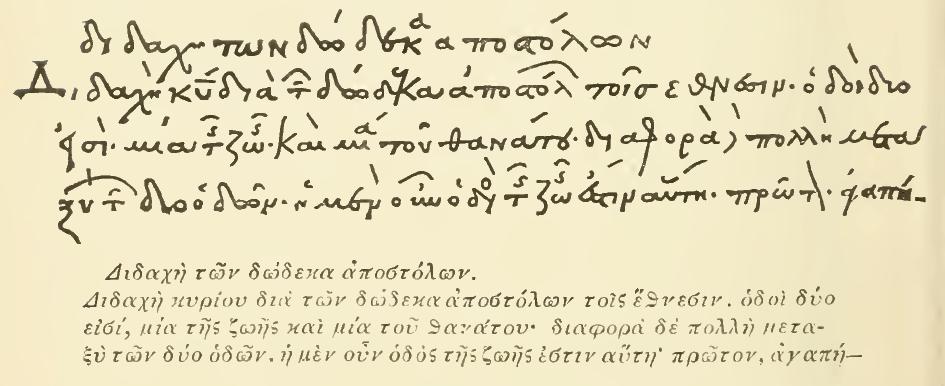 διδαχὴ των δώδεκα αποστόλων
Διδαχὴ κ̅υ̅ διὰ τ̑ δώδεκα ἀποστόλ τοῖσ εθνεσιν· ὁδοὶ δύο
εἰσι· μια τ̑ς ζω̑ς· και μία τοῦ θανάτου· διαφορὰ δ πολλὴ μετα
ξυ τ̑ δύο ὁδῶν· ἡ μεν οὖν ὁδὸς τ̑ς ζω̑ς ἐστιν αὕτη· πρῶτ· ἀγαπή-
Διδαχὴ τῶν δώδεκα ἀποστόλων.
Διδαχὴ κυρίου διὰ τῶν δώδεκα ἀποστόλων τοῖς ἔθνεσιν. ὁδοὶ δύο
εἰσί, μία τῆς ζωῆς καὶ μία τοῦ θανάτου· διαφορὰ δὲ πολλὴ μετα-
ξὺ τῶν δύο ὁδῶν. ἡ μὲν οὖν ὁδὸς τῆς ζωῆς ἐστιν αὕτη· πρῶτον, ἀγαπή—